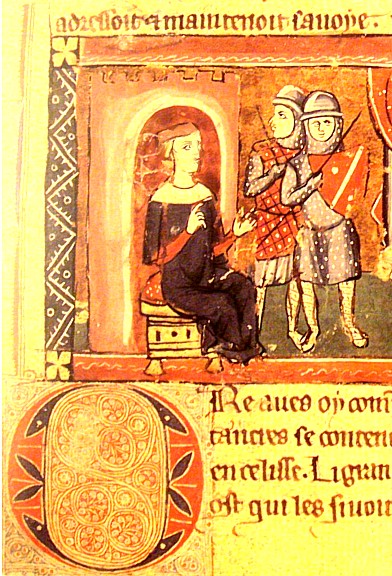 adressoit et maintenoit sauoye.
Ore aues oy com
tancres se conten
en celisse. Li gran
ost qui les siuoit